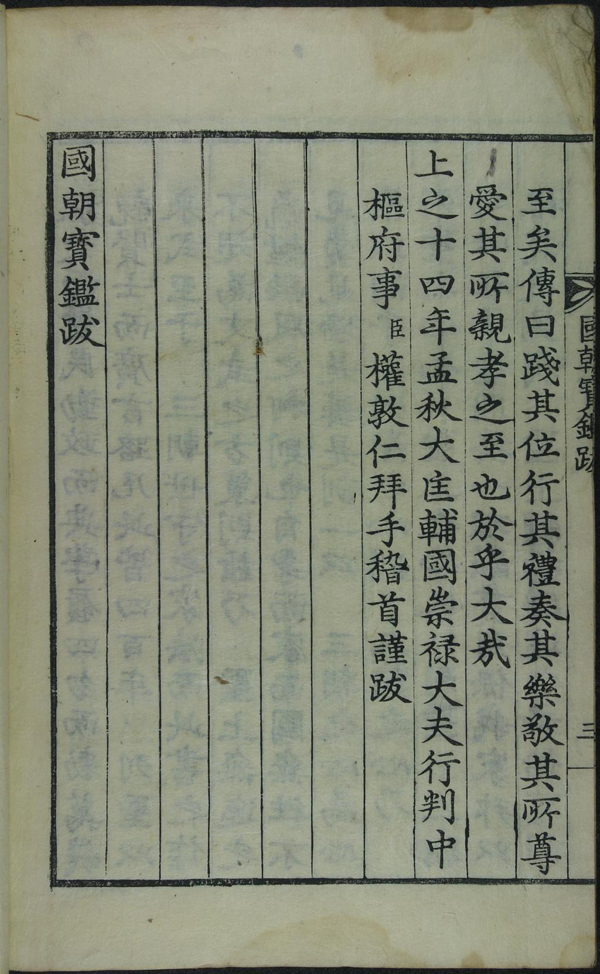 國朝寶鑑跋
三
至矣傳曰踐其位行其禮奏其樂敬其所尊
愛其所親孝之至也於乎大哉
上之十四年孟秋大匡輔國崇祿大夫行判中
樞府事臣權敦仁拜手稽首謹跋
國朝寶鑑跋